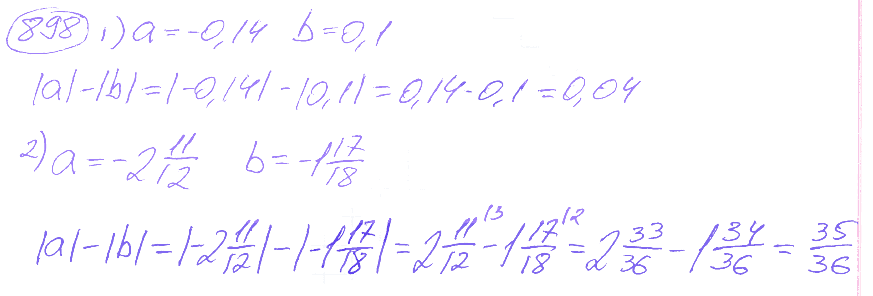 898 1) a = -0,14 b = 0,1
|a| - |b| = |-0,14| - |0,1| = 0,14 - 0,1 = 0,04
2) a = -2 11/12 b = -1 17/18
|a| - |b| = |-2 11/12| - |-1 17/18| = 2 11/12 /3 - 1 17/18 /2 = 2 33/36 - 1 34/36 = 35/36